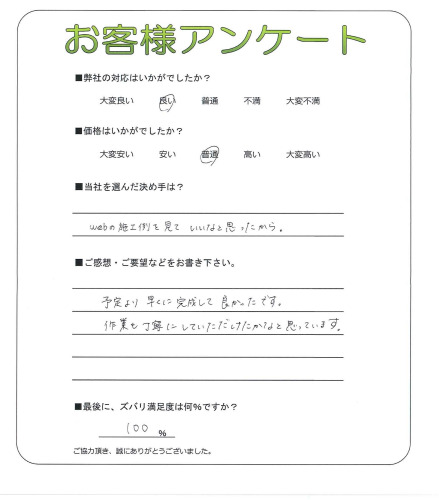 お客様アンケート
■弊社の対応はいかがでしたか？
大変良い 良い 普通 不満 大変不満
■価格はいかがでしたか？
大変安い 安い 普通 高い 大変高い
■当社を選んだ決め手は？
webの施工例を見ていいなと思ったから。
■ご感想・ご要望などをお書き下さい。
予定より早くに完成して良かったです。
作業も丁寧にしていただけたかなと思っています。
■最後に、ズバリ満足度は何％ですか？
100 %
ご協力頂き、誠にありがとうございました。